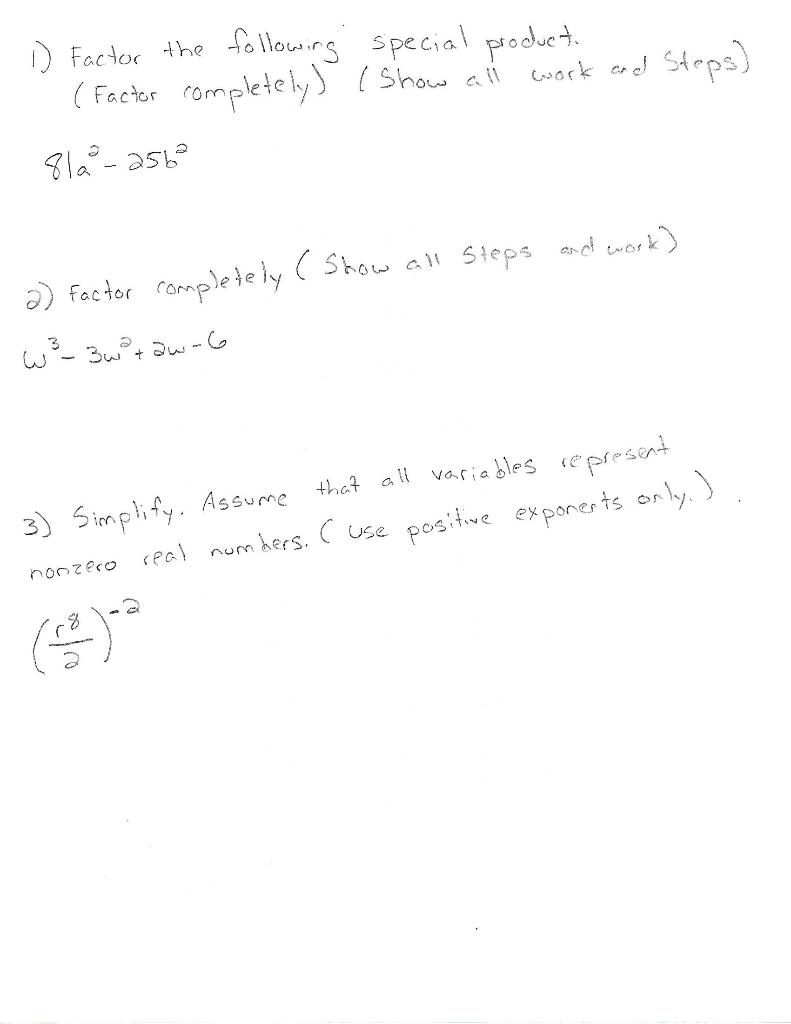 1) Factor the following special product.
(Factor completely) (Show all work and Steps)
81a² - 25b²
2) Factor completely (Show all steps and work)
w³ - 3w² + 2w - 6
3) Simplify. Assume that all variables represent
nonzero real numbers. (use positive exponents only.)
(r⁸/2)⁻²